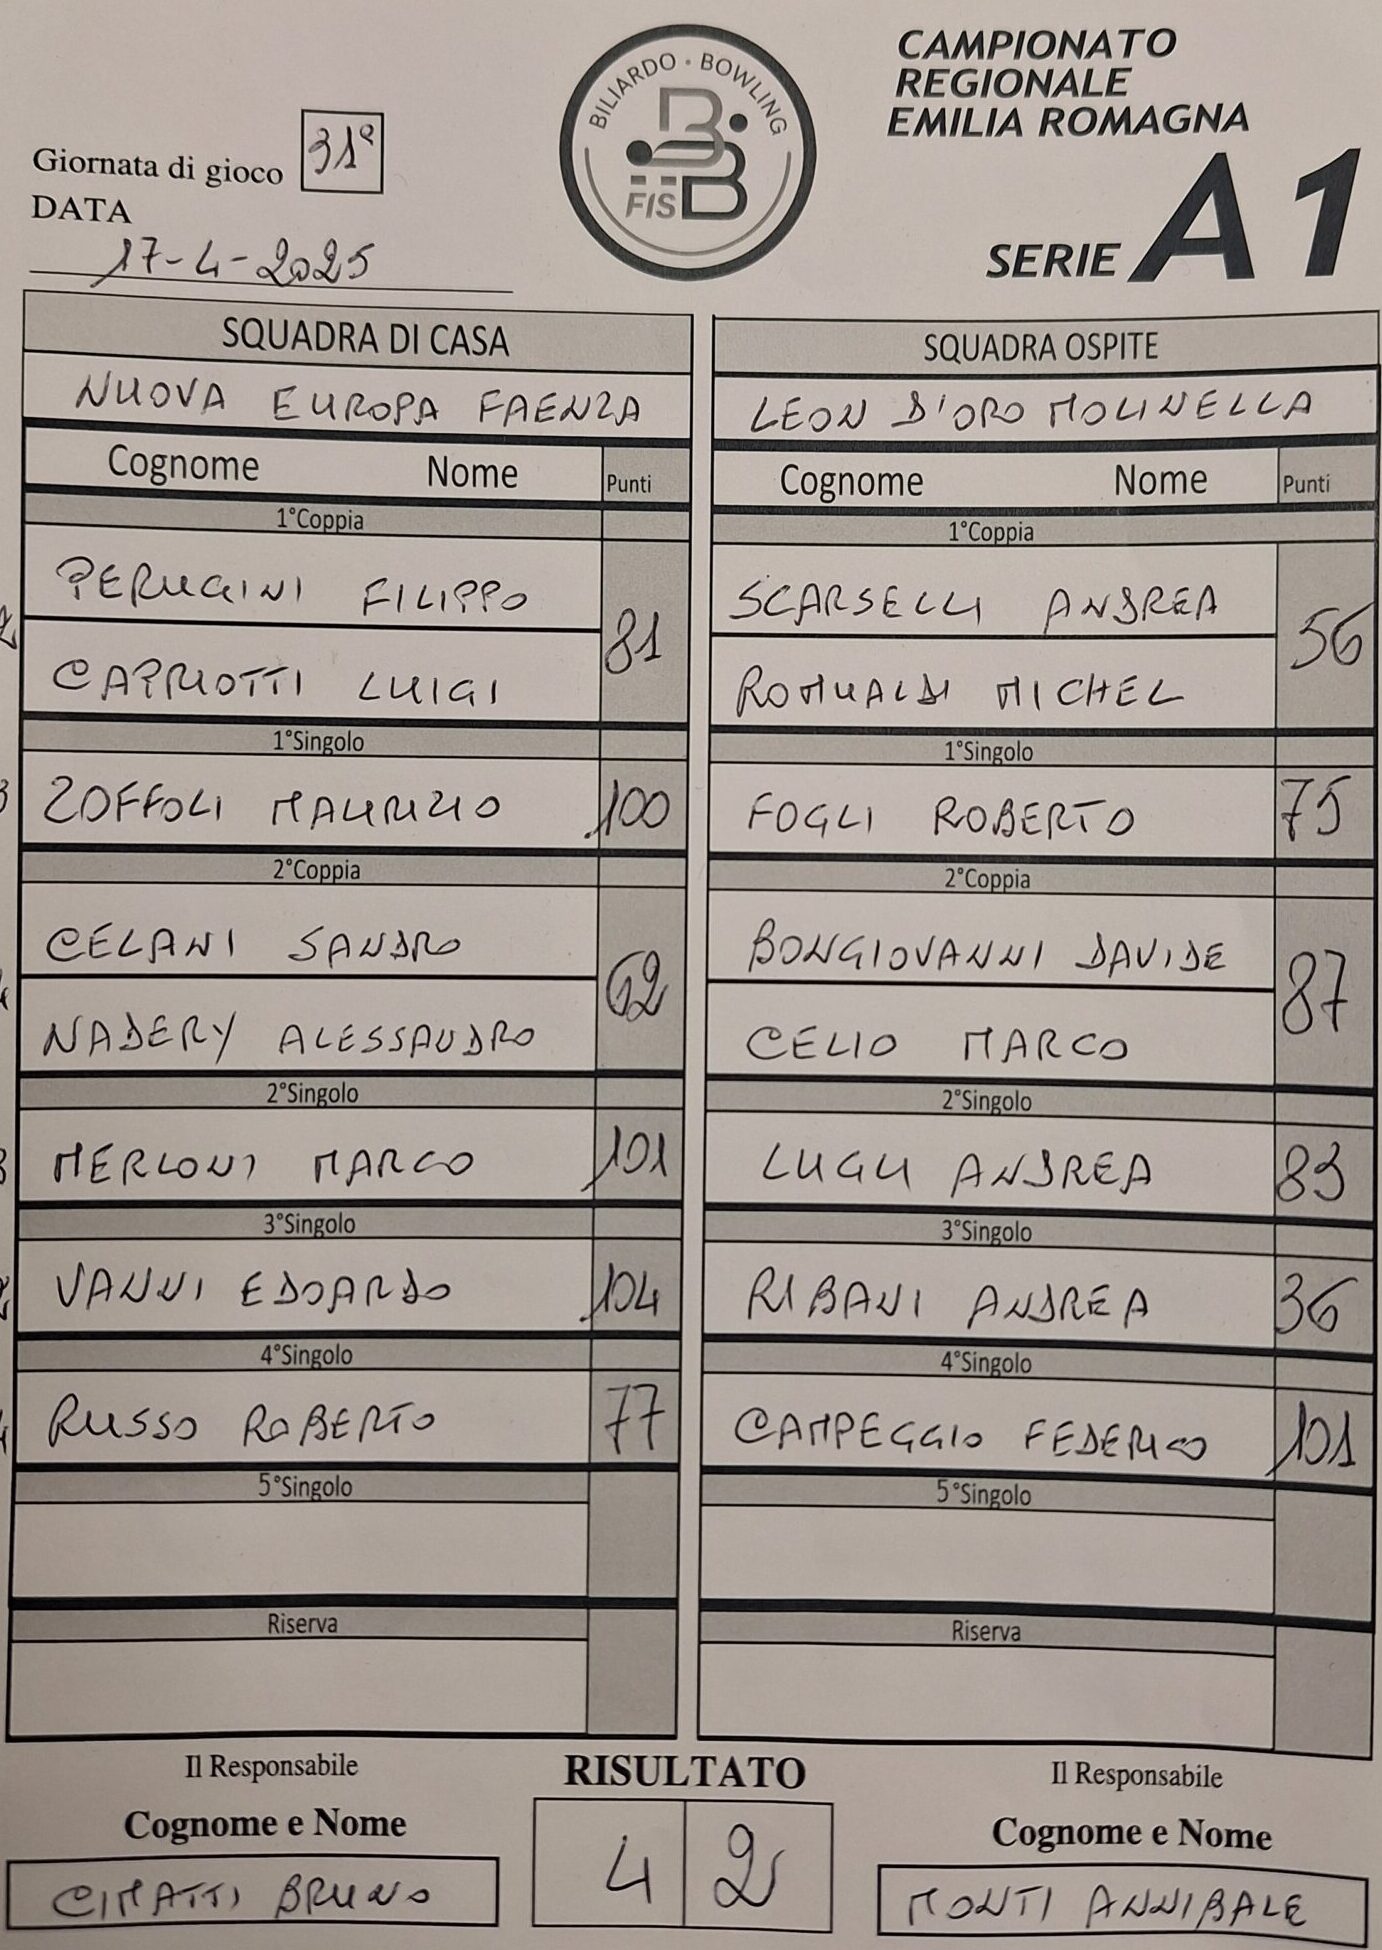 BILIARDO · BOWLING
FISBB
CAMPIONATO
REGIONALE
EMILIA ROMAGNA
SERIE A1
Giornata di gioco 31ª
DATA
17-4-2025
SQUADRA DI CASA
NUOVA EUROPA FAENZA
Cognome Nome Punti
1°Coppia
PERUGINI FILIPPO
81
CAPRIOTTI LUIGI
1°Singolo
ZOFFOLI MAURIZIO 100
2°Coppia
CELANI SANDRO
62
NADERY ALESSANDRO
2°Singolo
MERLONI MARCO 101
3°Singolo
VANNI EDOARDO 104
4°Singolo
RUSSO ROBERTO 77
5°Singolo
Riserva
SQUADRA OSPITE
LEON D'ORO MOLINELLA
Cognome Nome Punti
1°Coppia
SCARSELLI ANDREA
56
ROMUALDI MICHEL
1°Singolo
FOGLI ROBERTO 75
2°Coppia
BONGIOVANNI DAVIDE
87
CELIO MARCO
2°Singolo
LUGLI ANDREA 83
3°Singolo
RIBANI ANDREA 36
4°Singolo
CAMPEGGIO FEDERICO 101
5°Singolo
Riserva
Il Responsabile
Cognome e Nome
CIMATTI BRUNO
RISULTATO
4 2
Il Responsabile
Cognome e Nome
MONTI ANNIBALE